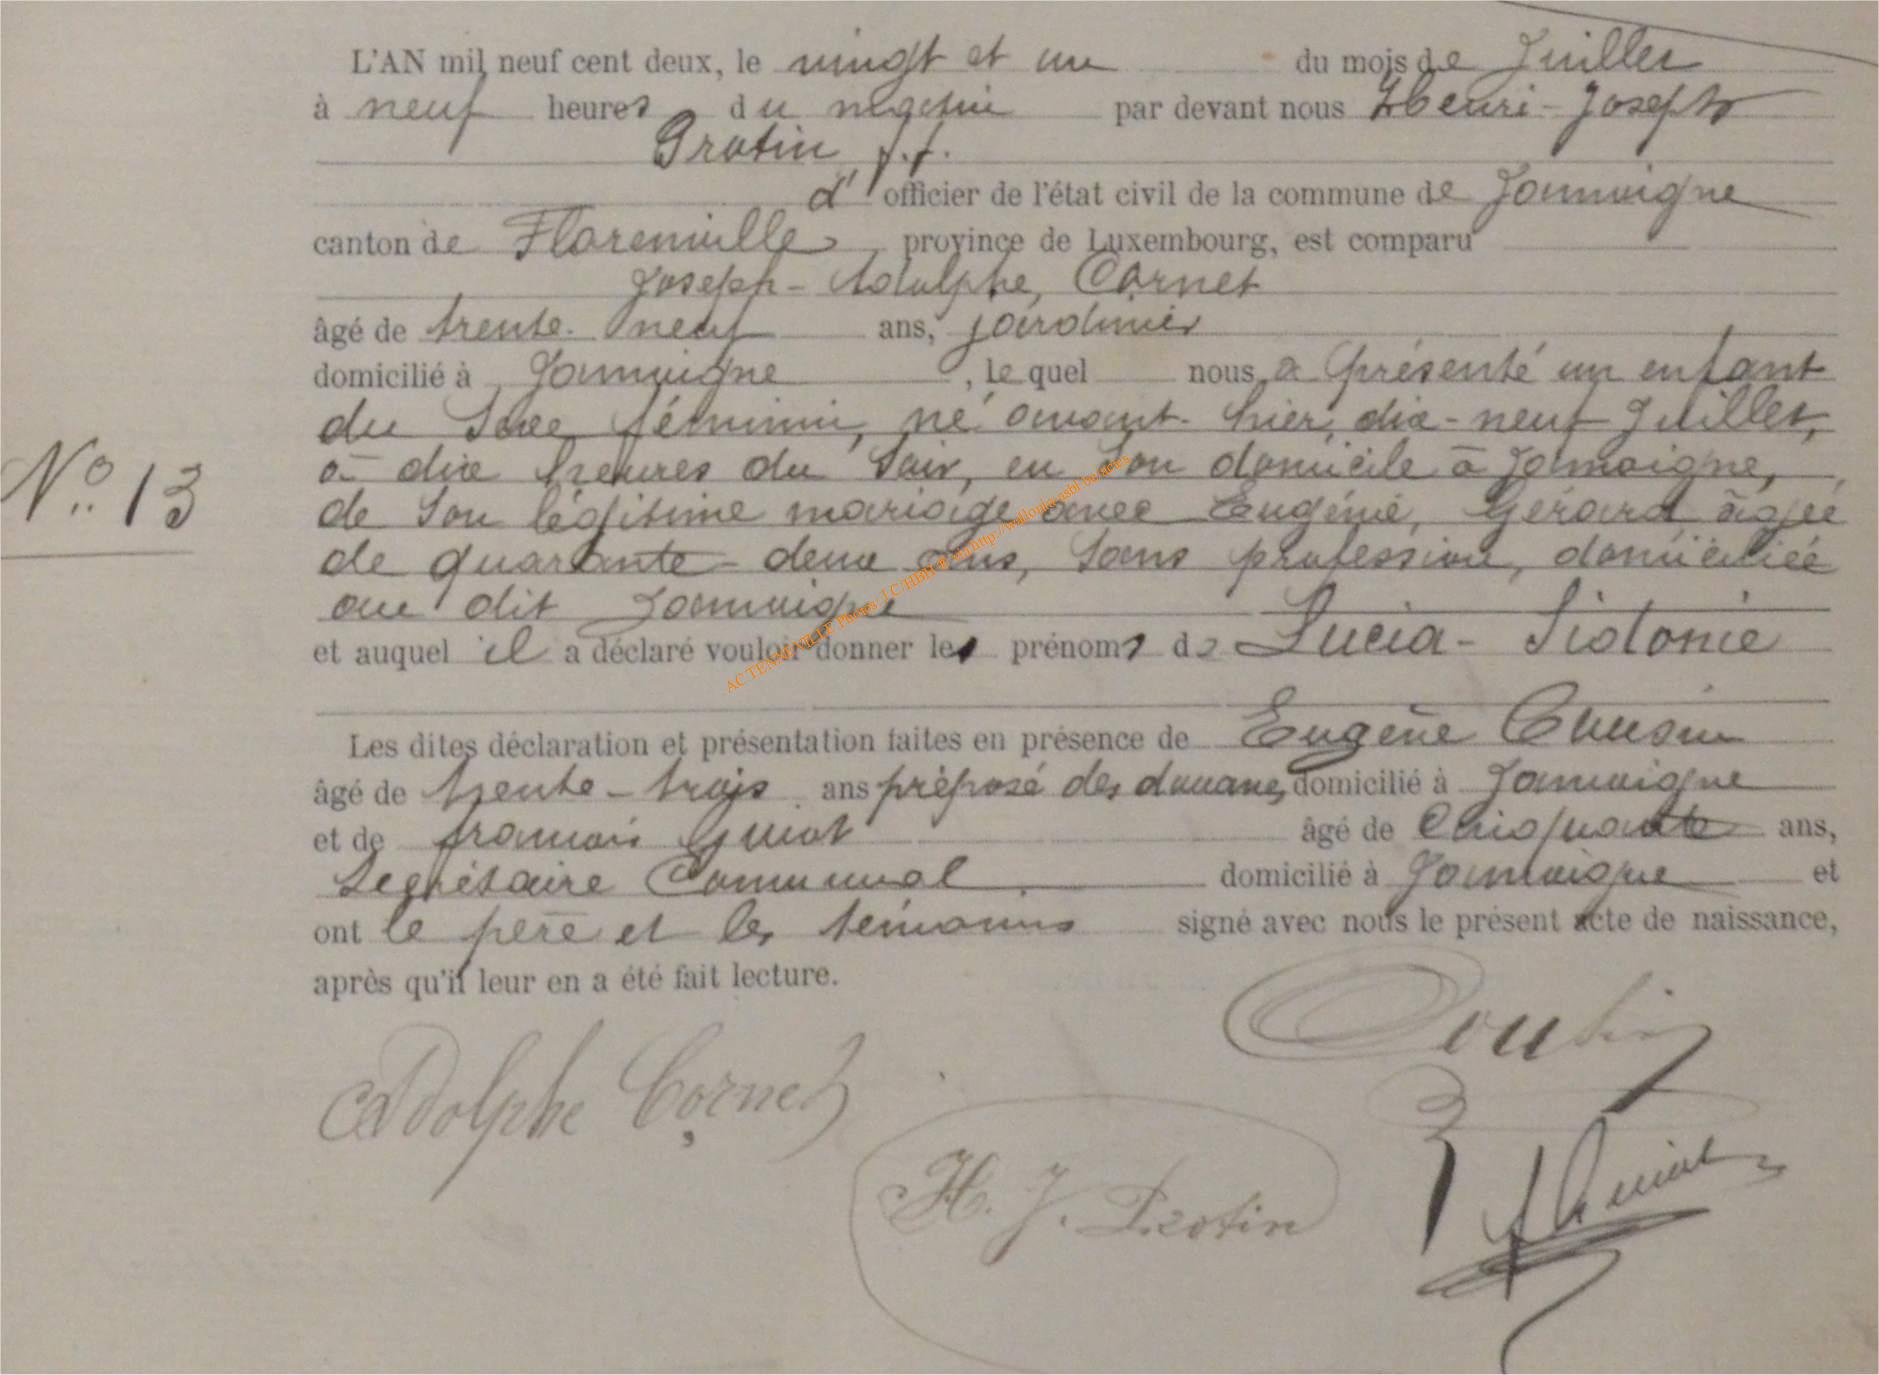 L'AN mil neuf cent deux, le vingt et un du mois de Juillet
à neuf heures du matin par devant nous Henri-Joseph
Protin f.f.
d'officier de l'état civil de la commune de Jamoigne
canton de Florenville, province de Luxembourg, est comparu
Joseph-Adolphe, Cornet
âgé de trente-neuf ans, jardinier
domicilié à Jamoigne, le quel nous a présenté un enfant
du Sexe féminin, né avant-hier, dix-neuf Juillet,
N° 13
à dix heures du Soir, en Son domicile à Jamoigne,
de Son légitime mariage avec Eugénie, Gérard âgée
de quarante-deux ans, Sans profession, domiciliée
au dit Jamoigne
et auquel il a déclaré vouloir donner les prénoms de Lucia-Sidonie
Les dites déclaration et présentation faites en présence de Eugène
âgé de trente-trois ans préposé des douanes, domicilié à Jamoigne
et de françois Guiot âgé de Cinquante ans,
Secrétaire Communal domicilié à Jamoigne et
ont le père et les témoins signé avec nous le présent acte de naissance,
après qu'il leur en a été fait lecture.
Adolphe Cornet
H. J. Protin